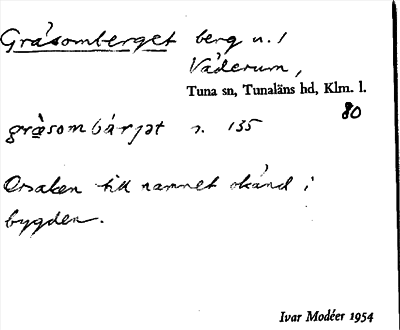 Gråsomberget berg n. 1
Våderum,
Tuna sn, Tunaläns hd, Klm. l.
80
gråsombärjət s. 135
Orsaken till namnet okänd i
bygden.
Ivar Modéer 1954